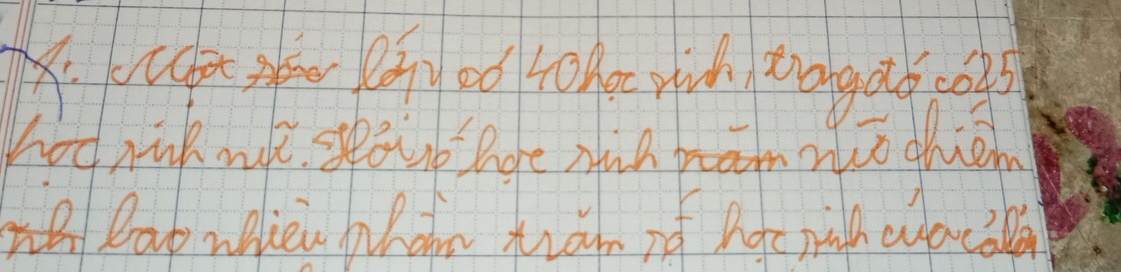 1. Một lớp có 40 học sinh, trong đó có 25
học sinh nữ. Hỏi số học sinh năm nữ chiếm
bao nhiêu phần trăm số học sinh của cả lớp